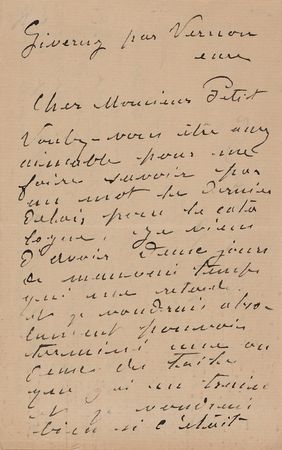 Giverny par Vernon
eure
Cher Monsieur Petit
Voulez-vous être assez
aimable pour me
faire savoir par
un mot le dernier
délais pour le cata
logue, je viens
d'avoir deux jours
de mauvais temps
qui me retarde.
et je voudrais abso
lument pouvoir
terminé une ou
deux des toiles
que j'ai en train
et je voudrais
bien si c'était